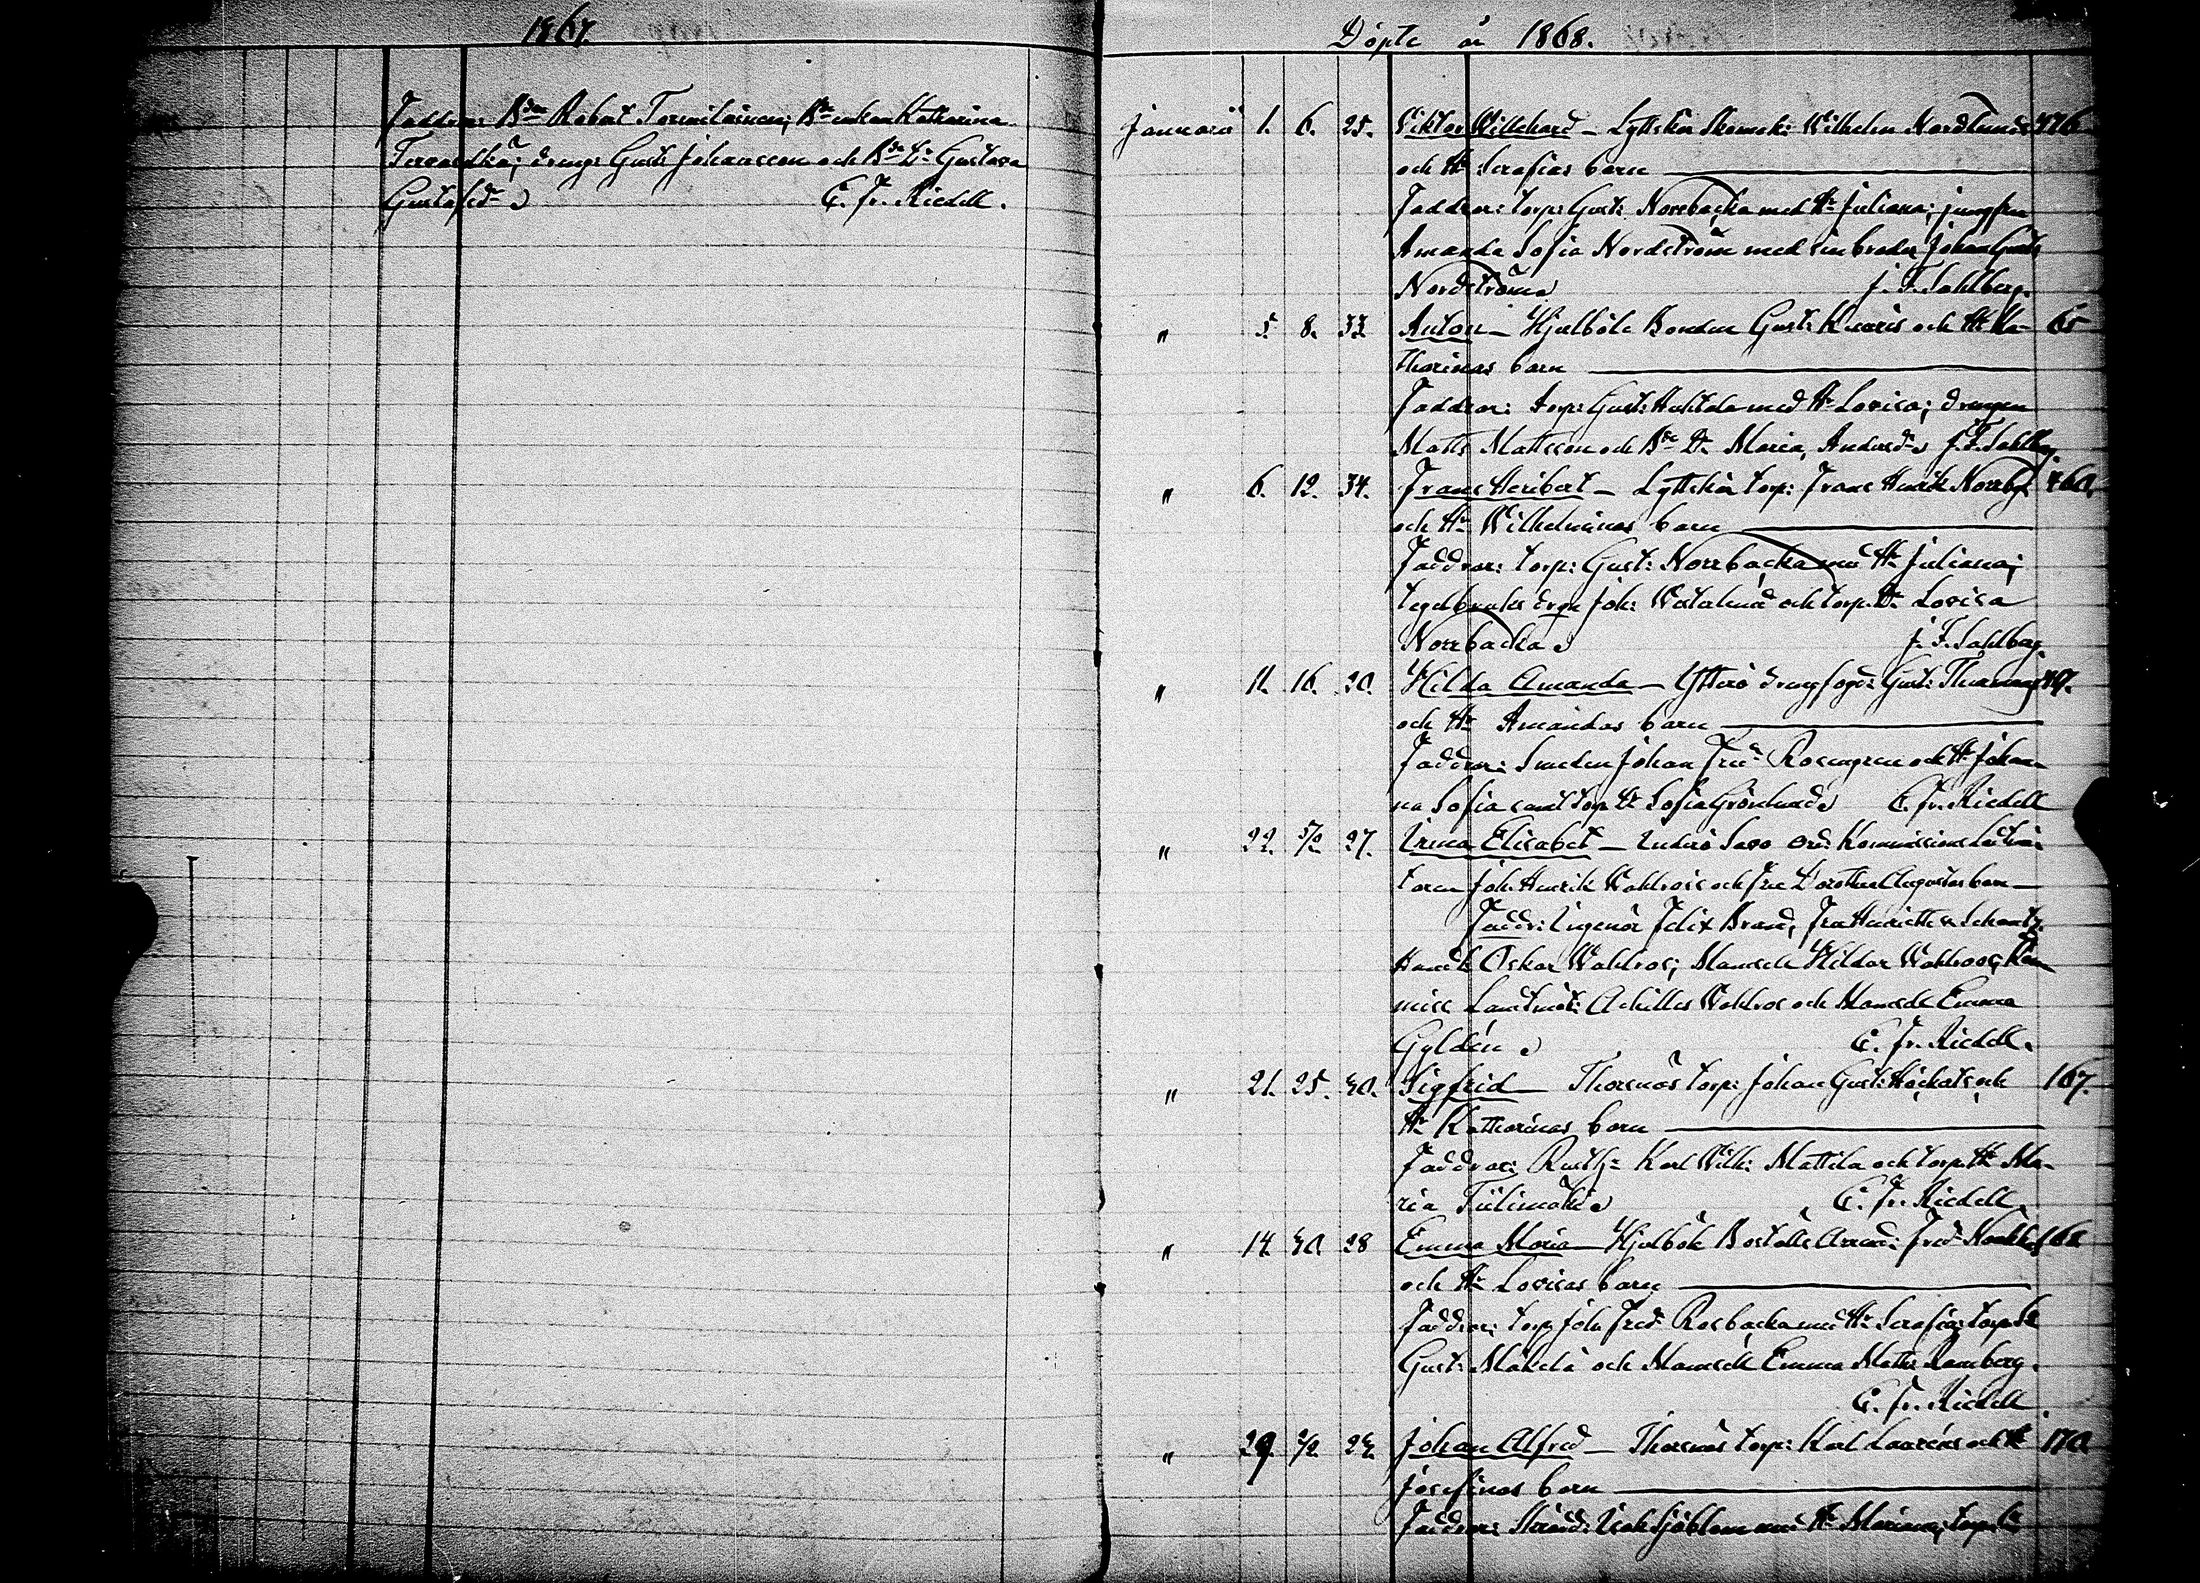 1867.
Faddrar: Bdn Robert Tormilainen, Bdeenkan Katharina
drg: Gust: Johansson och Bde Dr Gustava
Gustafsdr C. Fr. Riedell.
Döpte år 1868.
Januari 1. 6. 25. Viktor Willehard – Lyttskär Skomak: Wilhelm Nordlunds 476
och Hu Serafias barn
Faddrar: torp: Gust: Norrbacka med Hu Juliana; jungfru
Amanda Sofia Nordström med sin broder Johan Gust:
Nordström J. F. Sahlberg.
" 5. 8. 33. Anton – Hjulböle Bonden Gust: Knaris och Hu Ka- 65
tharinas barn
Faddrar: torp: Gust: Huhtala med Hu Lovisa; drengen
Matts Mattsson och Bde Dr Maria Andersdr J. F. Sahlbg.
" 6. 12. 34. Frans Heribert – Lyttskär torp: Frans Henrik Norrby 460.
och Hu Wilhelminas barn
Faddrar: torp: Gust: Norrbacka med Hu Juliana;
tegelbruks drgn Joh: Westerlund och torp. Dr Lovisa
Norrbacka J. F. Sahlberg.
" 11. 16. 20. Hilda Amanda – Ytterö drengfogd: Gust: 49.
och Hu Amandas barn
Faddrar: Smeden Johan Fred: Rosengren och Hu Johan-
na Sofia samt torp Dr Sofia Grönlund C. Fr. Riedell
" 22. 5/2 27. Irene Elisabet – Inderö Saxo Ord: Kommissions Landtmä-
taren Joh: Henrik Wahlroos och Fru Dorothea Augustas barn
Faddr: Ingeniör Felix Brand, Fru Henriette v. Schantz,
Oskar Wahlroos; Mamsell Hilda Wahlroos, Kom-
miss Landtmät: Achilles Wahlroos och Mamsell Emma
Gyldén C. Fr. Riedell.
" 21. 25. 40. Sigfrid – Thorsnäs torp: Johan Gust: och 167.
Hu Katharinas barn
Faddrar: Rusth: Karl Wilh: Mattila och torp. Hu Ma-
ria Tiilimäki C. Fr. Riedell.
" 14. 30. 28 Emma Maria – Hjulböle Boställs Arrend: Fred: 168
och Hu Lovisas barn
Faddrar: torp Joh: Fred: Rosbacka med Hu Serafia; torp
Gust: Mäkelä och Mamsell Emma Math: Ramberg.
C. Fr. Riedell
" 29. 2/2 24. Johan Alfred – Thorsnäs torp: Karl Laurén och Hu 170
Josefinas barn
Faddrar: Isak Sjöblom med Hu Mariana; torp.